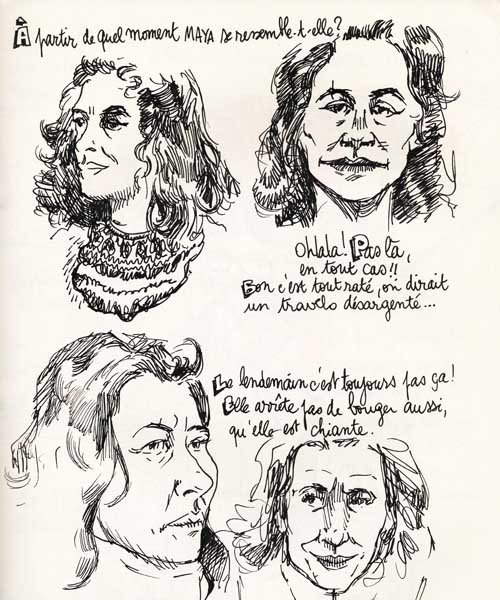 À partir de quel moment MAYA se ressemble-t-elle?
Ohlala! Pas là,
en tout cas!!
Bon c'est tout raté, on dirait
un travelo désargenté...
Le lendemain c'est toujours pas ça!
Elle arrête pas de bouger aussi,
qu'elle est chiante.